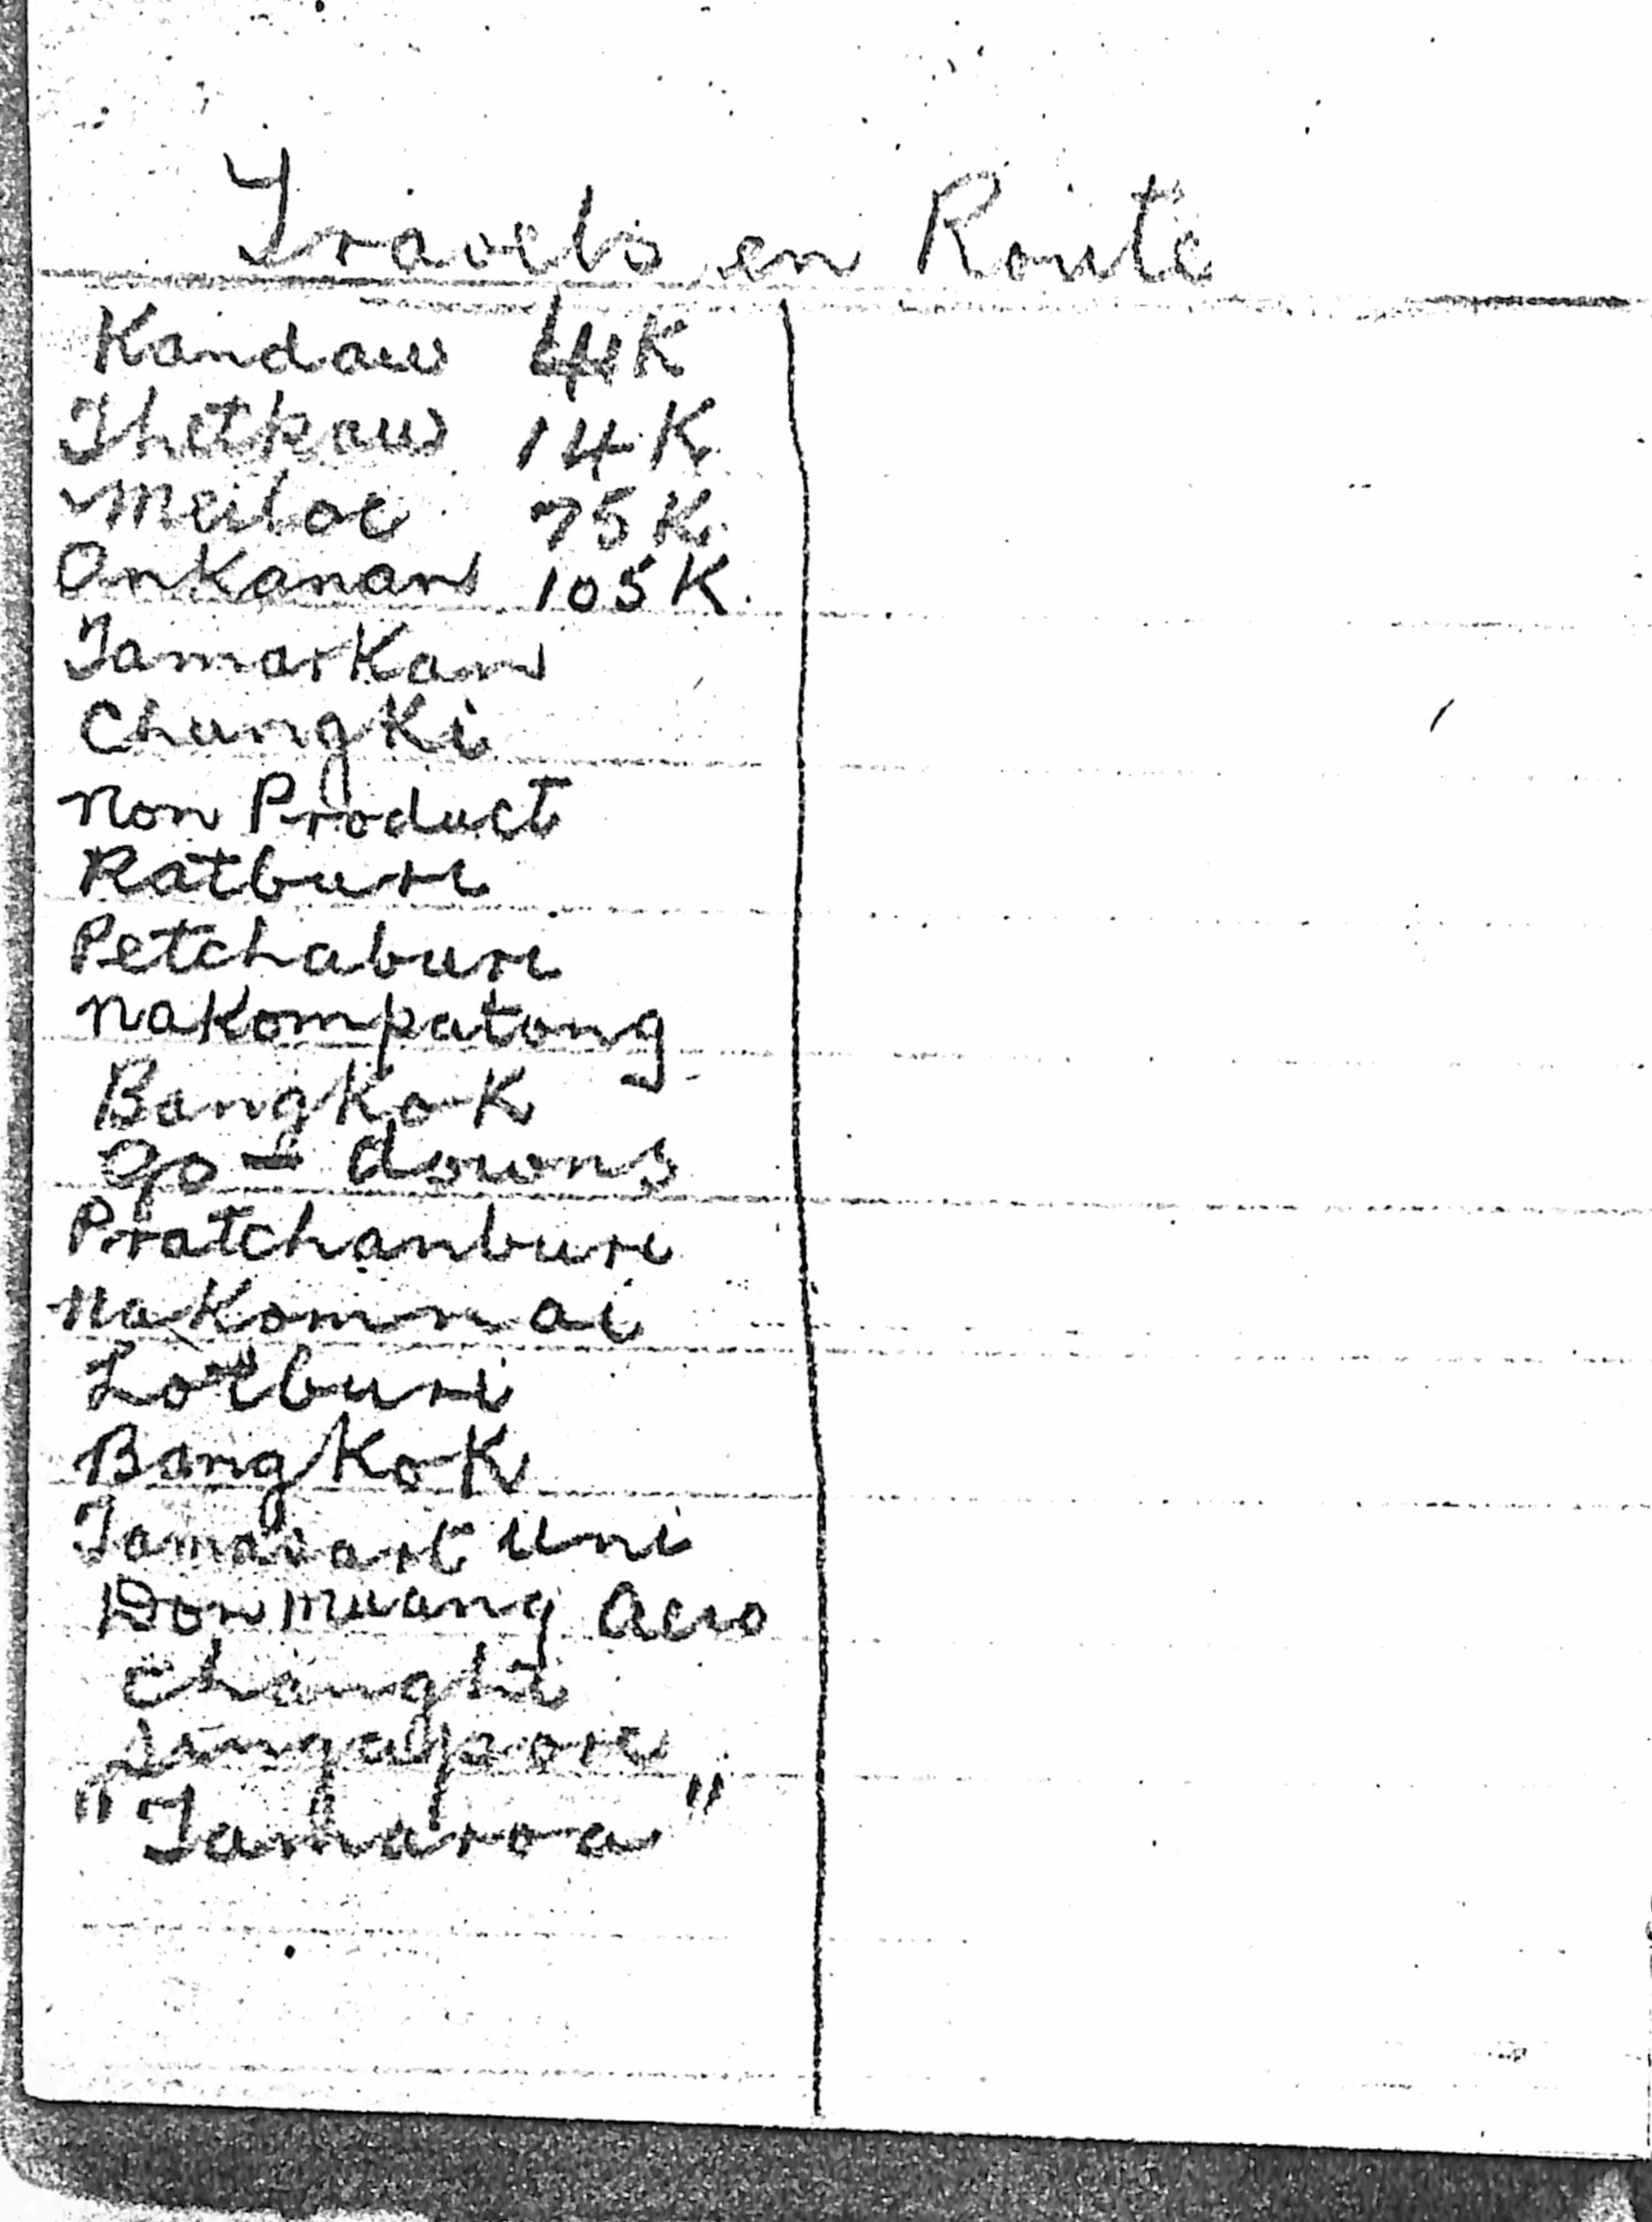 Travels en Route
Kandaw 4K
Thetkaw 14K
Meiloe 75K
Ankanan 105K.
Tamarkan
Chungki
Non Product
Ratburi
Petchaburi
Nakompatong
Bangkok
Go-downs
Pratchanburi
Nakomnai
Lotburi
Bangkok
Tamasart Uni
Don Muang Aero
Changhi
Singapore
"Tamaroa"